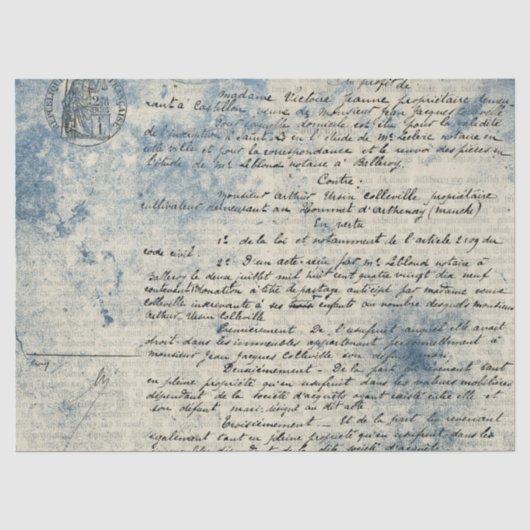 RÉPUBLIQUE FRANÇAISE
Au profit de
Madame Victoire Jeanne propriétaire demeu
rant à Castillon, veuve de Monsieur Jean Jacques Colleville
Pour laquelle domicile est élu pour la validité
de l'inscription à Saint en l'étude de Me Leclerc notaire en
cette ville et pour la correspondance et le renvoi des pièces en
l'étude de Me Leblond notaire à Balleroy.
Contre
Monsieur Arthur Ursin Colleville propriétaire
cultivateur demeurant au Hommet d'Arthenay (Manche)
En vertu
1º de la loi et notamment de l'article 2109 du
code civil
2º D'un acte reçu par Me Leblond notaire à
Balleroy le deux juillet mil huit cent quatre vingt dix neuf
contenant donation à titre de partage anticipé par madame veuve
Colleville à ses enfants au nombre desquels monsieur
Arthur Ursin Colleville
Premièrement. De l'usufruit auquel elle avait
droit dans les immeubles appartenant personnellement à
monsieur Jean Jacques Colleville son défunt mari
Deuxièmement - De la part revenant tant
en pleine propriété qu'en usufruit dans les valeurs mobilières
dépendant de la société d'acquêts ayant existé entre elle et
son défunt mari audit acte
Troisièmement - Et de la part lui revenant
également tant en pleine propriété qu'en usufruit dans les
de la dite société d'acquêts